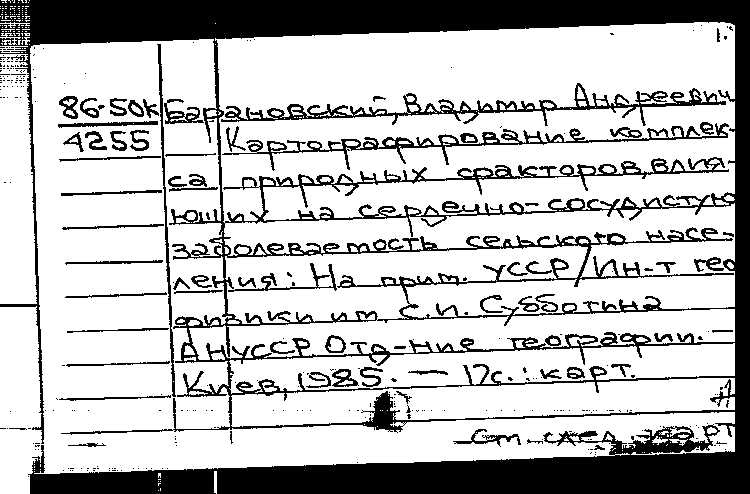 1.
86-50к Барановский, Владимир Андреевич
4255 Картографирование комплек-
са природных факторов, влия-
ющих на сердечно-сосудистую
заболеваемость сельского насе-
ления: На прим. УССР/Ин-т гео
физики им. С.И. Субботина
АН УССР Отд-ние географии. —
Киев, 1985. — 17с.: карт.
См. след. карт